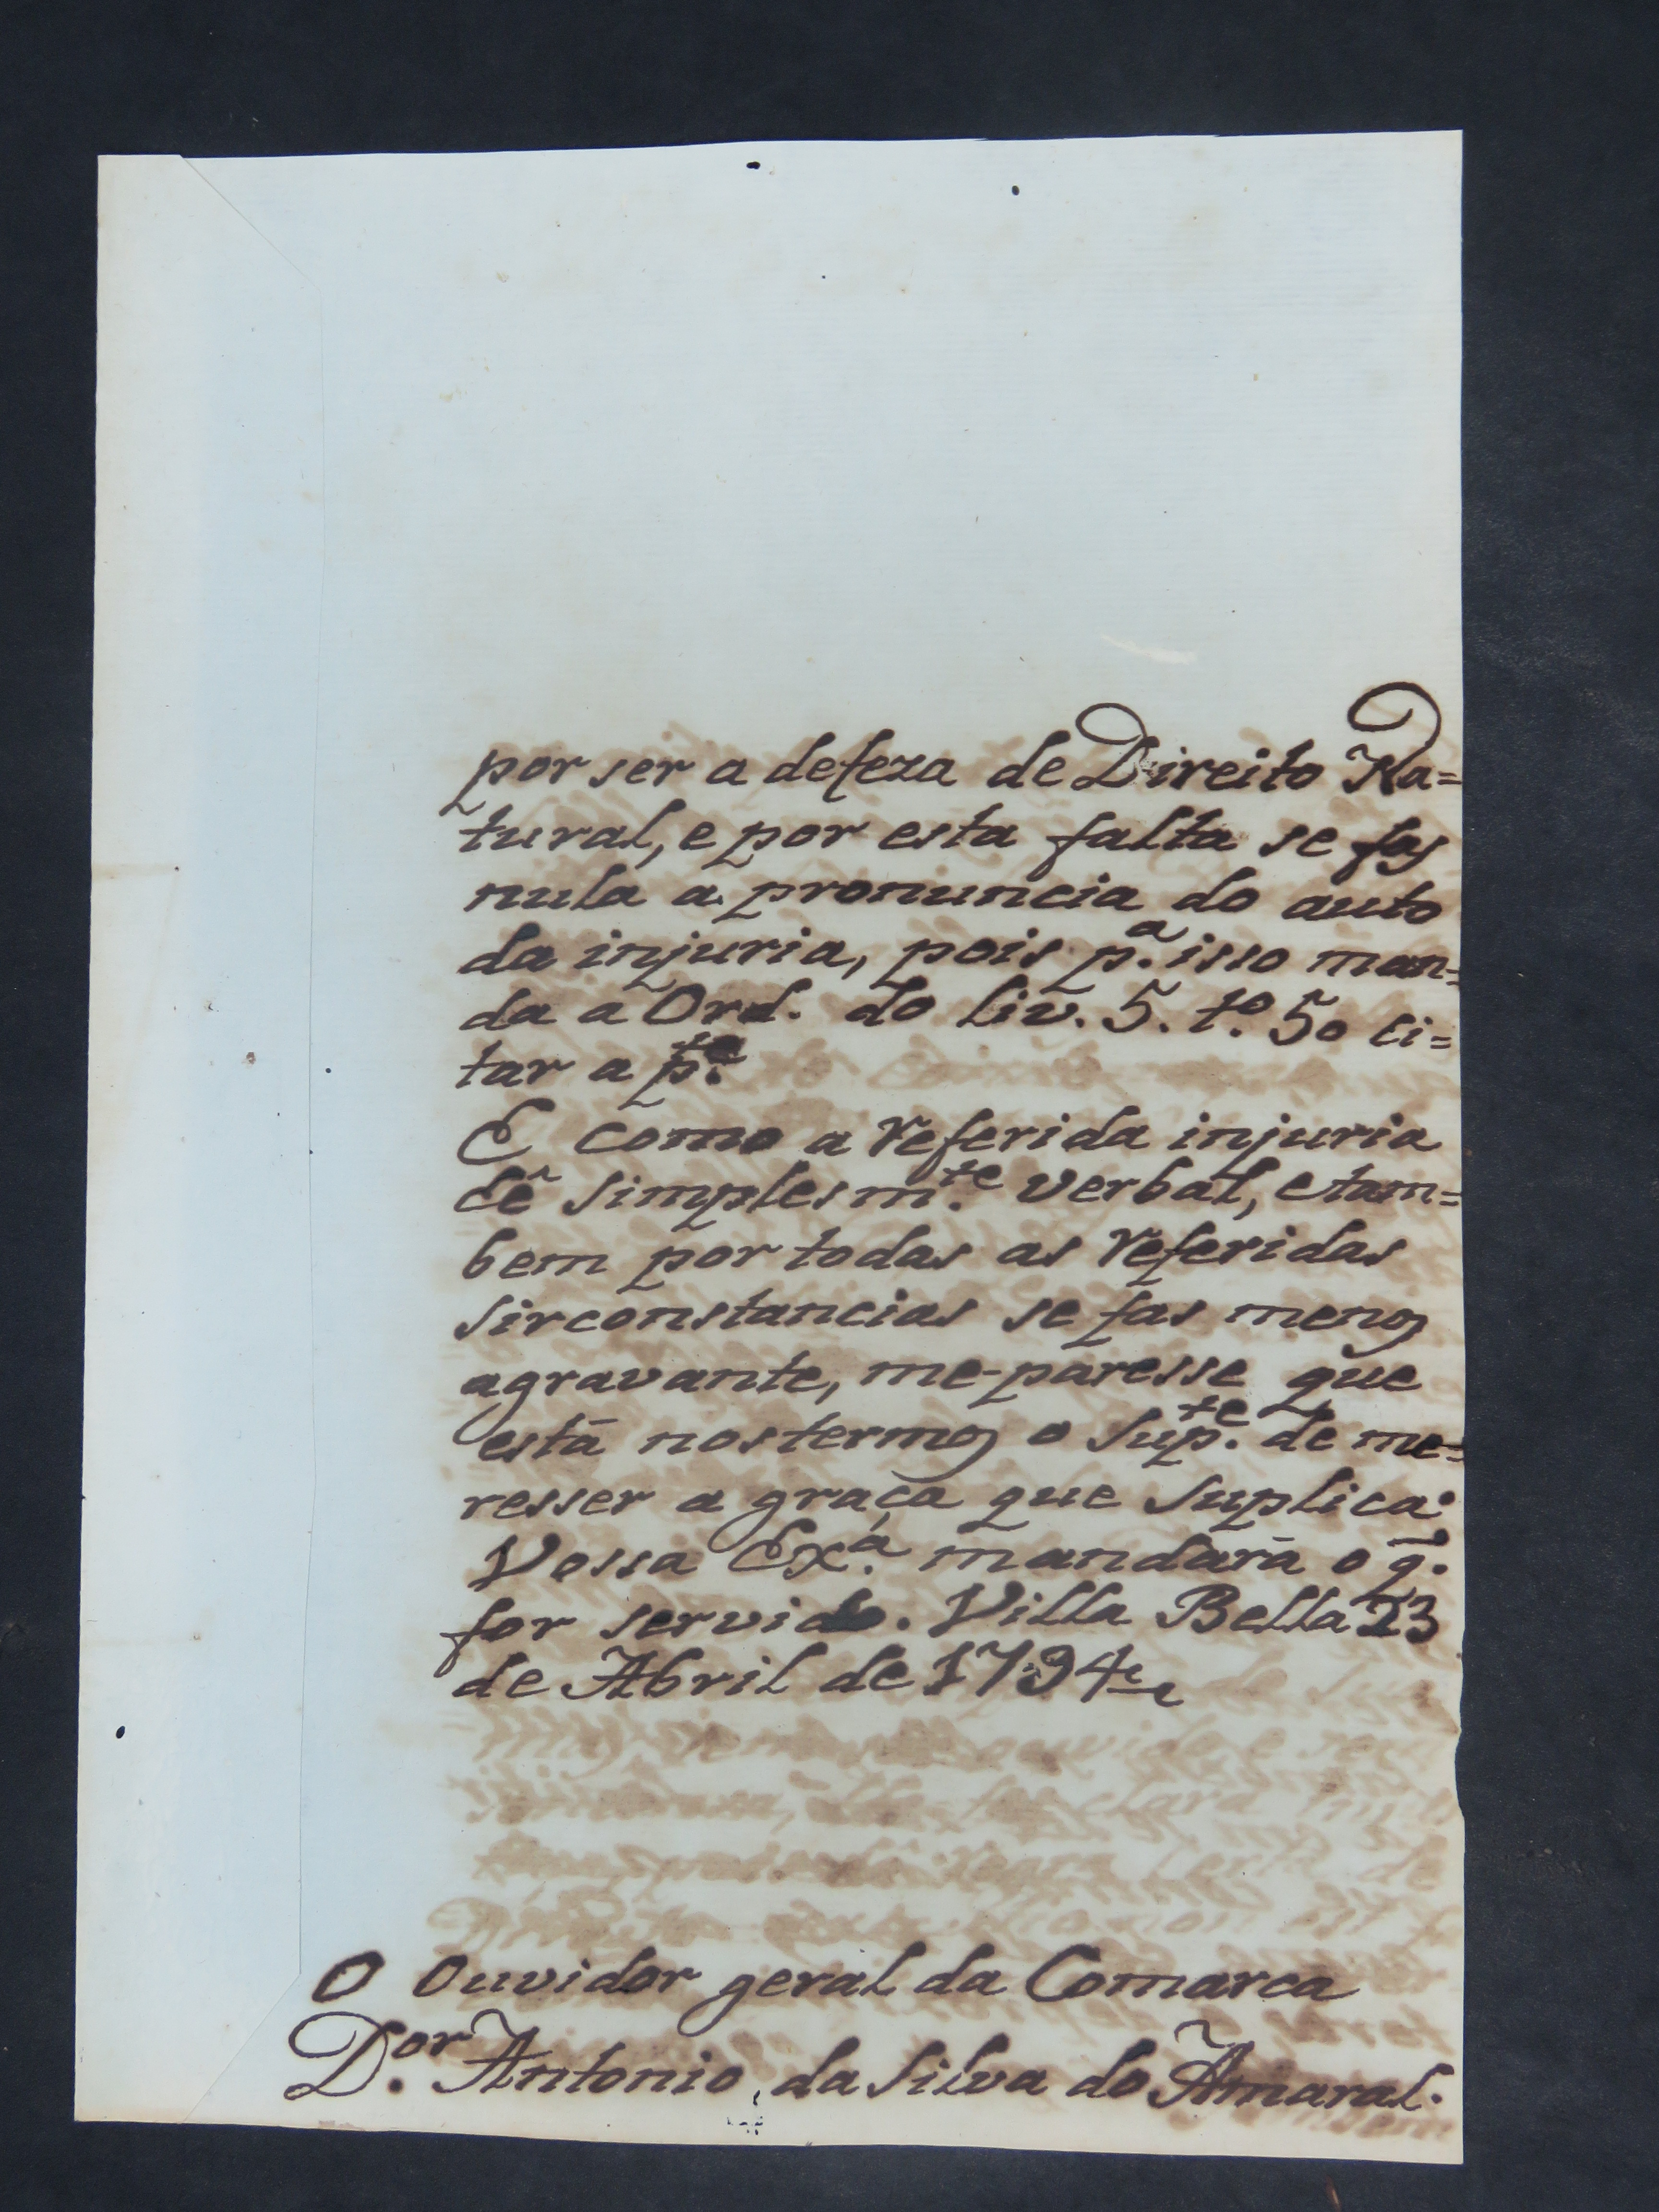 por ser a defeza de Direito Na=
tural, e por esta falta se fas
nula a pronuncia do auto
da injuria, pois p.ª isso man=
da a Ord. do liv. 5. t.º 50 ci=
tar a p.te
E como a referida injuria
hê simplesm.te verbal, e tam=
bem por todas as referidas
sirconstancias se fas menos
agravante, me-paresse que
está nos termos o Sup.te de me=
resser a graça que suplica.
Vossa Ex.ª mandará o q.
for servido. Villa Bella 23
de Abril de 1794
O Ouvidor geral da Comarca
D.or Antonio da Silva do Amaral.